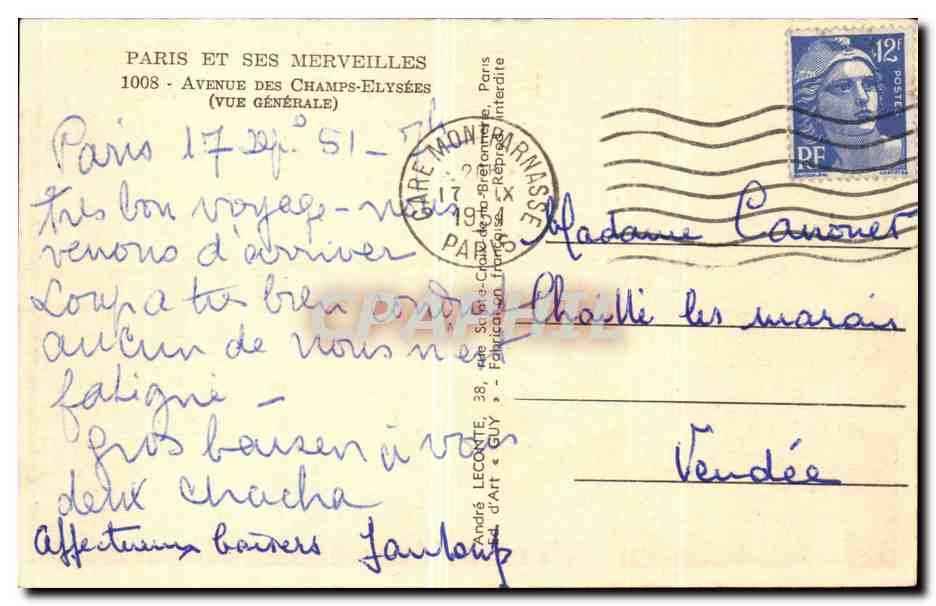 PARIS ET SES MERVEILLES
1008 - AVENUE DES CHAMPS-ELYSÉES
(VUE GÉNÉRALE)
Paris 17 Sep. 51 - 7h
très bon voyage - nous
venons d'arriver
Loup a très bien conduit
aucun de nous n'est
fatigué -
gros baiser à vous
deux Chacha
Affectueux baisers Janloup
André LECONTE, 38, rue Sainte-Croix-de-la-Bretonnerie, Paris
Ed. d'Art « GUY » - Fabrication française - Reprod. interdite
GARE MONTPARNASSE
17 IX
1951
PARIS
12F
POSTES
RF
Madame Canonet
Chaillé les marais
Vendée
CPARAMA